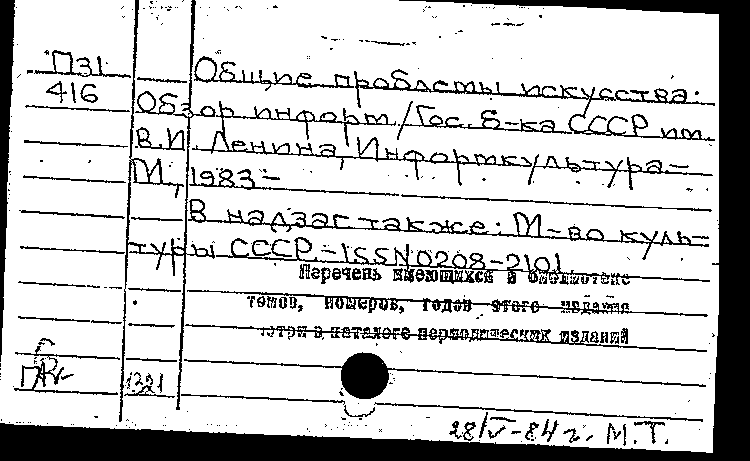 П31 Общие проблемы искусства:
416 Обзор информ./Гос. б-ка СССР им.
В.И. Ленина, Информкультура–
М., 1983–
В надзаг также: М-во куль-
туры СССР.–ISSN 0208-2101
Перечень имеющихся в библиотеке
томов, номеров, годов этого издания
смотри в каталоге периодических изданий
1321
28/V-84 г. М.Т.